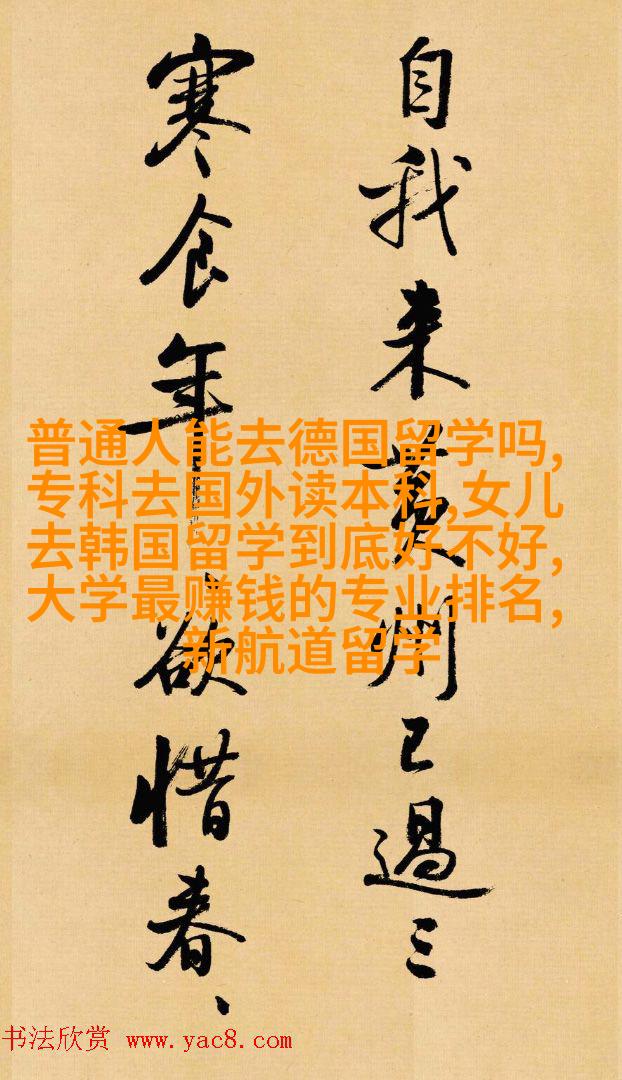 自我来黄州已過三
寒食年年欲惜春、
普通人能去德国留学吗,
专科去国外读本科,女儿
去韩国留学到底好不好,
大学最赚钱的专业排名,
新航道留学
书法欣赏 www.yac8.com